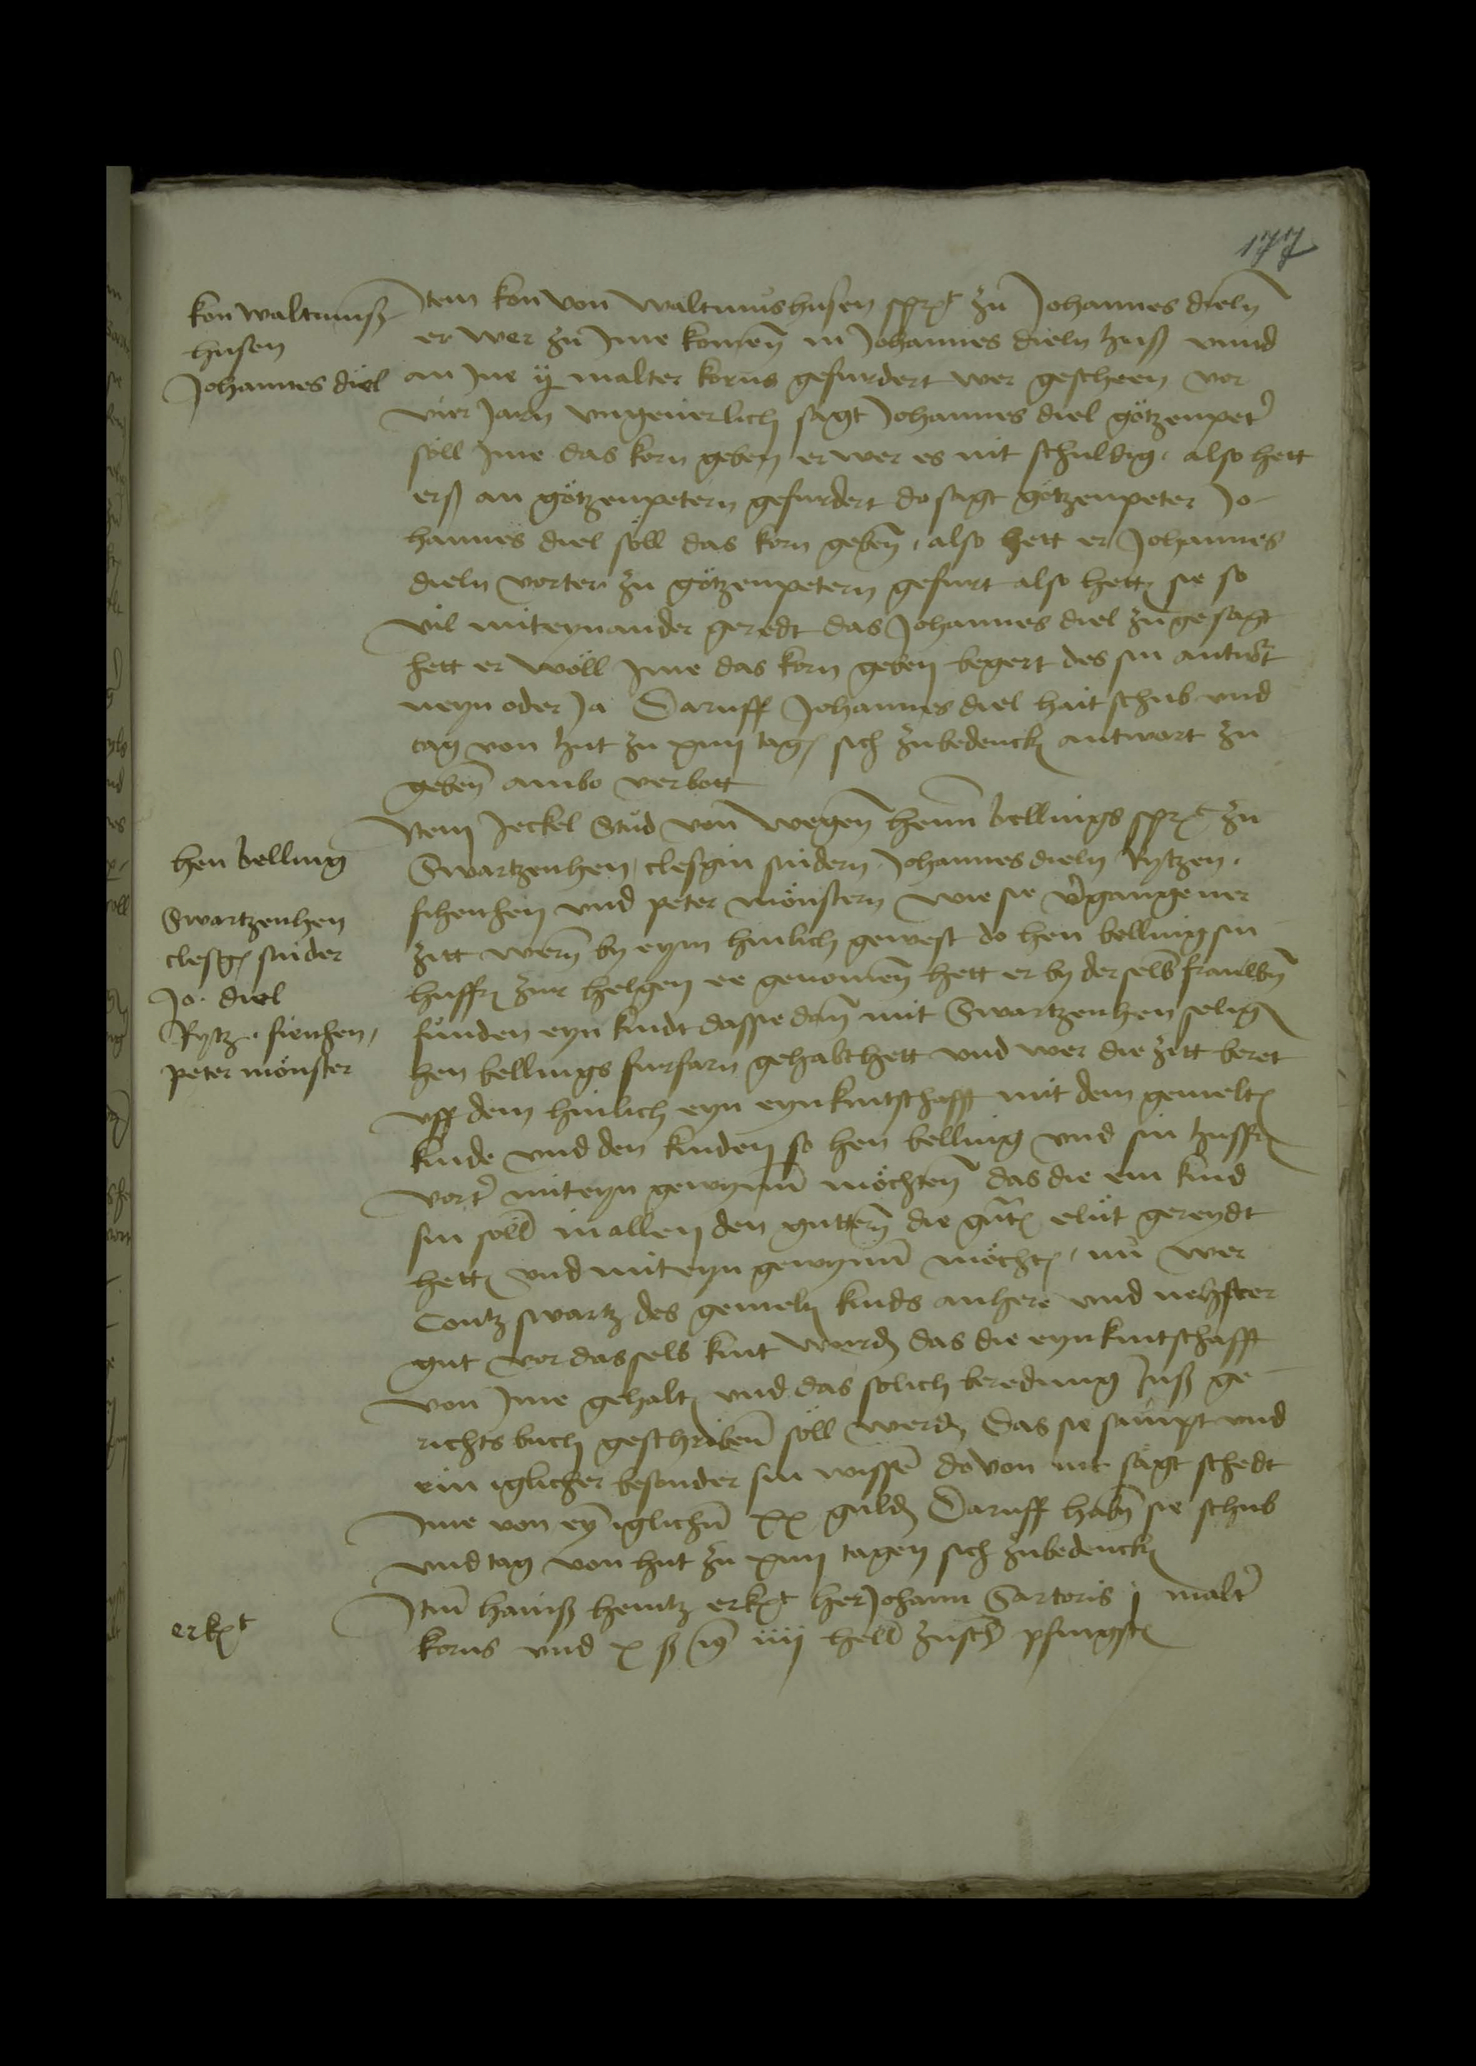 177
kon waltmuß-
husen
Johannes diel
Jtem kon von waltmußhusen spricht zu Johannes dieln
er wer zu Jme komen in Johannes dieln huß vnnd
an Jne ij malter korns gefurdert wer gescheen vor
vier Jarn vngeuerlich sagt Johannes diel götzenpeter
söll Jme das korn geben er wer es nit schuldig also hett
erß an götzenpetern gefurdert do sagt götzenpeter Jo-
hannes diel söll das korn geben also hett er Johannes
dieln vorter zu götzenpetern gefurt also hetten sie so
vil miteynander geredt das Johannes diel zugesagt
hett er wöll Jme das korn geben begert des sin antwort
neyn oder Ja Daruff Johannes diel hait schub vnd
tag von hut zu xiiij tagen sich zubedencken antwort zu
geben ambo verbott
hen belling
Swartzenhen
clesgen snider
Jo. diel
Rytz. fiehen,
peter mönster
Jtem Jeckel Stud von wegen henn bellings spricht zu
Swartzenhen, clesgin snidern Johannes dieln Rytzen.
fihenhen vnd peter mönstern wie sie vergangener
zitt wern by eym hinlich gewest do hen belling sin
husfrau zur helgen ee genomen hett er by der selben frauwen
funden eyn kindt das sie dann mit Swartzenhen seligen
hen bellings furfarn gehabt hett vnd wer die zitt beret
vff dem hinlich eyn eynkintschafft mit dem gemelten
kinde vnd den kinden so hen belling vnd sin husfrau
vorter miteyn gewynnen möchten das die ein kind
sin solden in allen den guttern die guten elut gereydt
hetten vnd miteyn gewynnen möchten, nu wer
Contz swartz des gemelten kinds anhere vnd nehster
gut vor dasselb kint wurde das die eynkintschafft
von Jme gehalten vnd das solich beredung Jnß ge-
richts buch geschriben söll werden Das sie sampt vnd
ein iglicher besonder sin wissen dovon nit sagt schedt
Jme von eym iglichen xx gulden Daruff haben sie schub
vnd tag von hut zu xiiij tagen sich zubedencken
erkent
Jtem hanß hentz erkent her Johann Sartoris j malter
korns vnd x ß iiij heller zuschen pfingsten